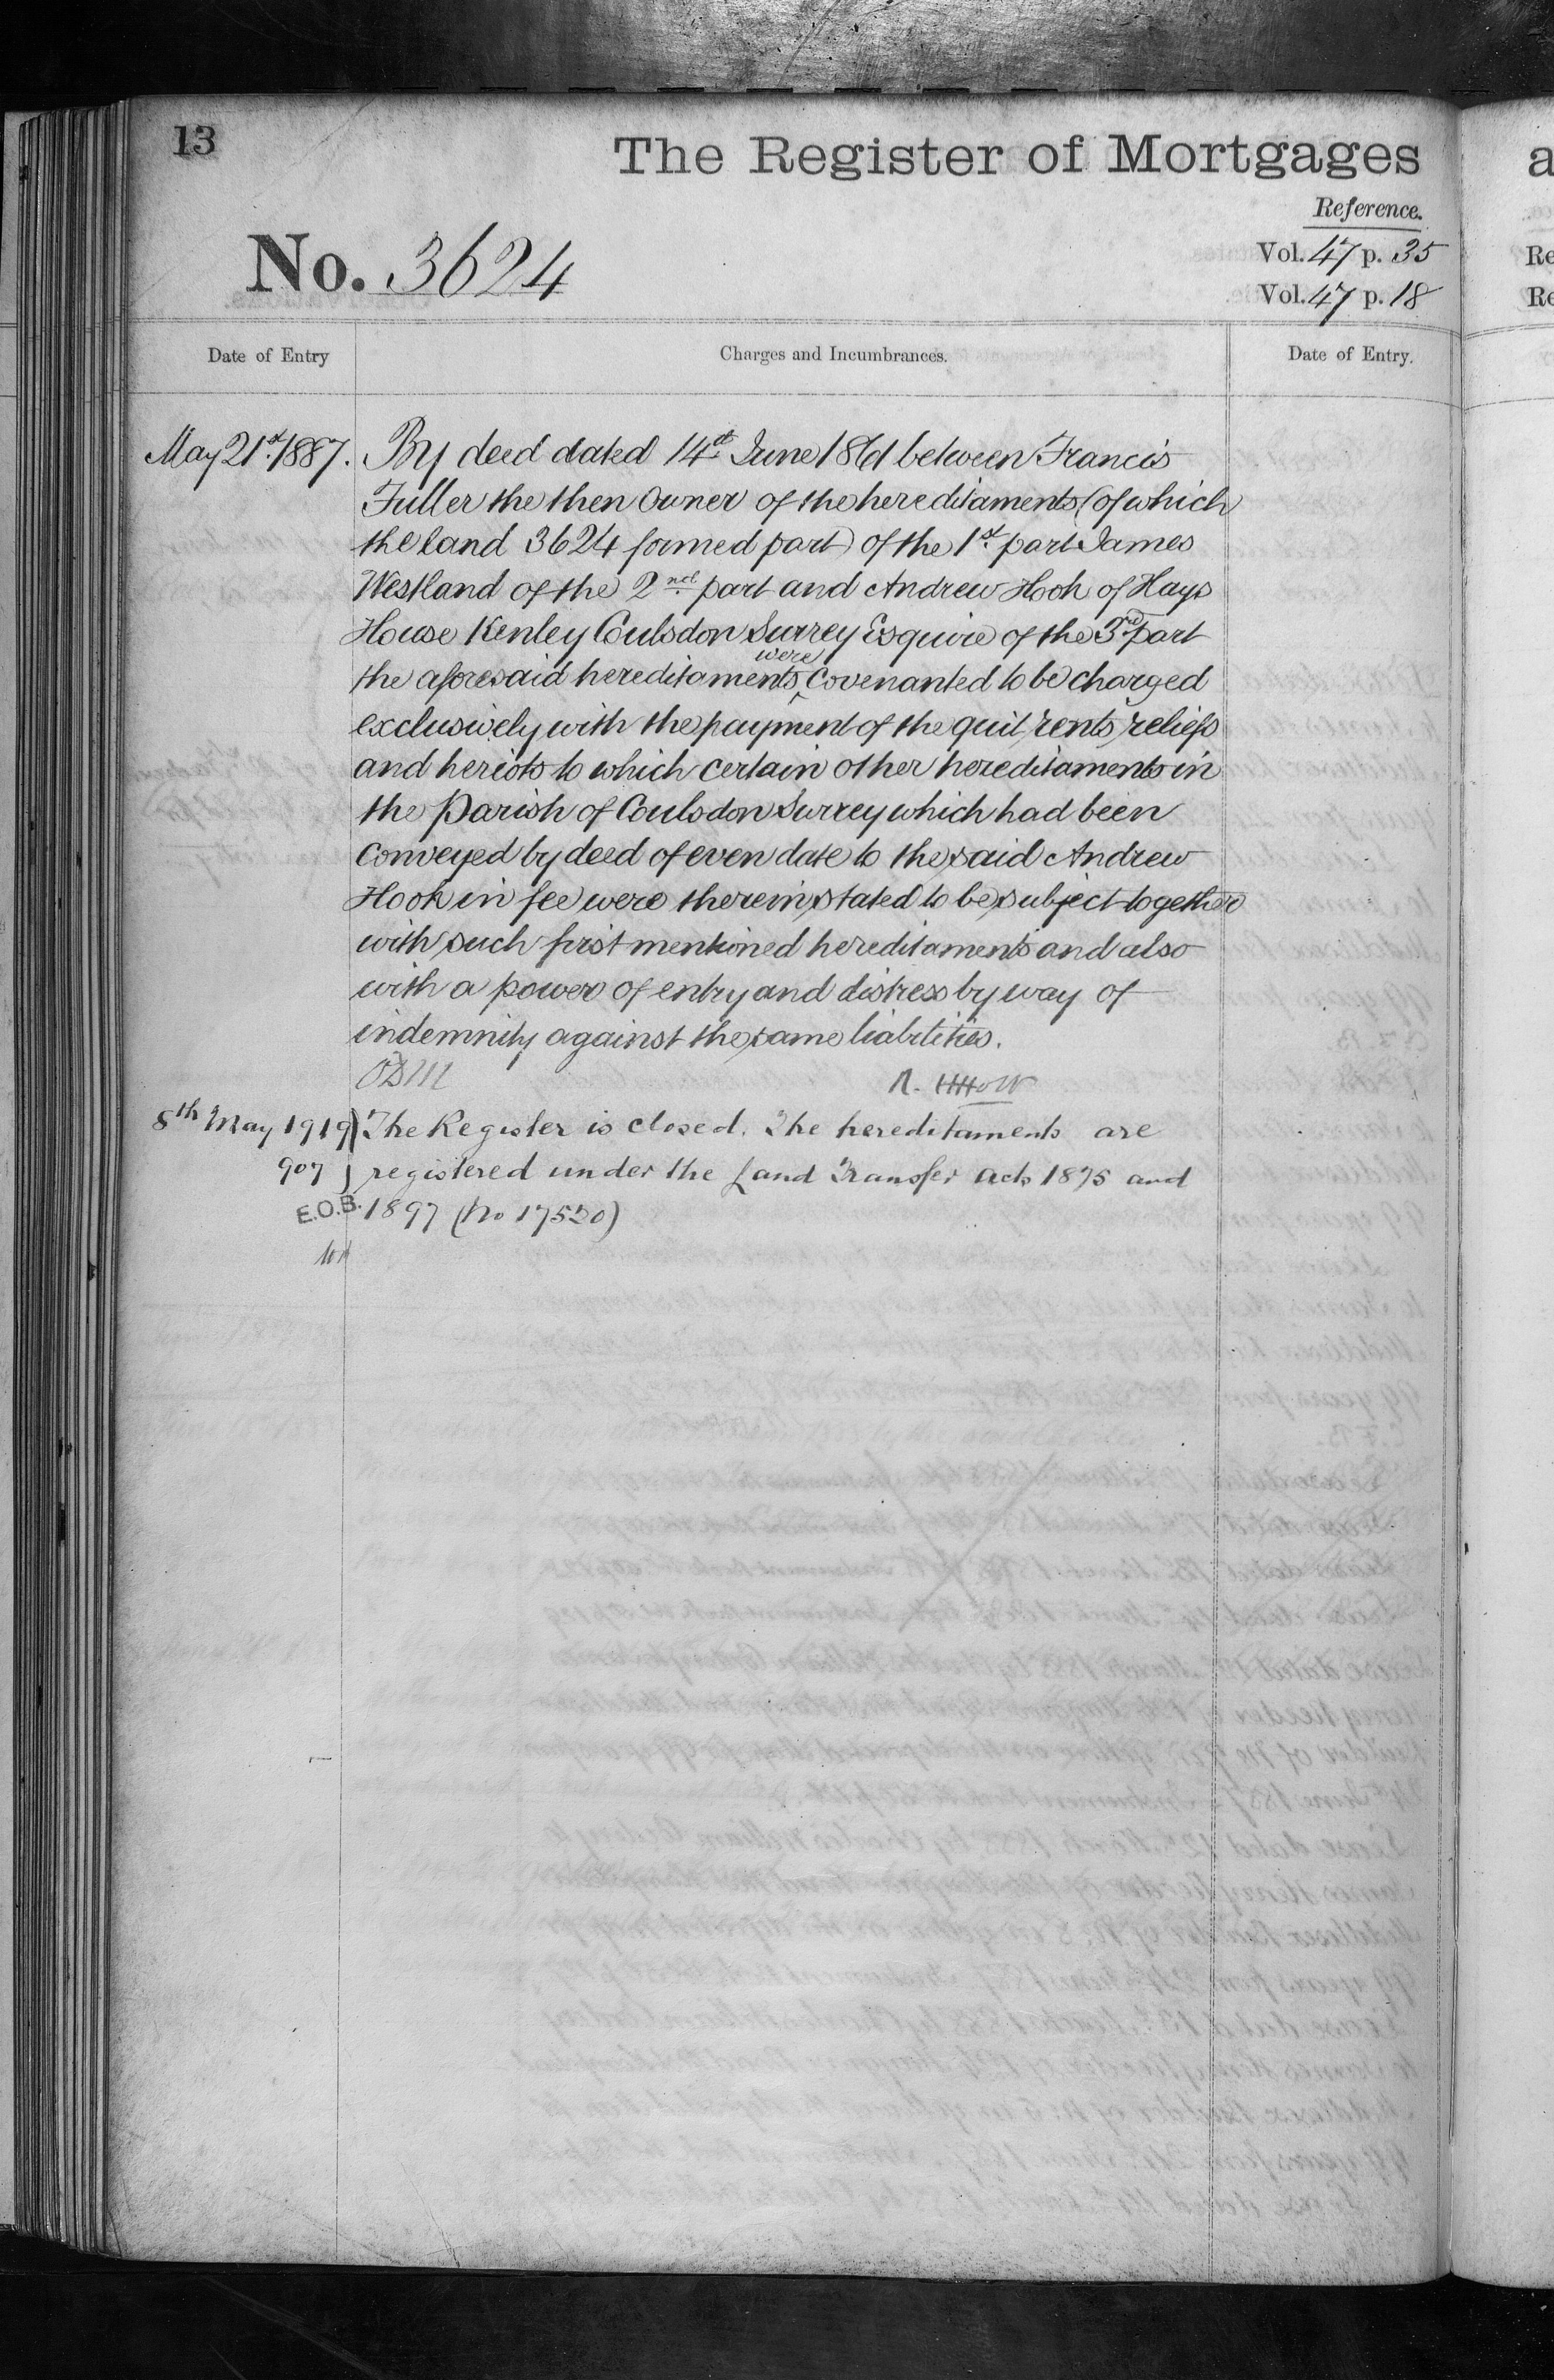 13
The Register of Mortgages
Reference.
No. 3624
Vol. 47 p. 35
Vol. 47 p. 18
Date of Entry
Charges and Incumbrances.
Date of Entry.
May 21st 1887. By deed dated 14th June 1861 between Francis
Fuller the then owner of the hereditaments (of which
the land 3624 formed part) of the 1st part James
Westland of the 2nd part and Andrew Hook of Hays
House Kenley Coulsdon Surrey Esquire of the 3rd part
the aforesaid hereditaments were covenanted to be charged
exclusively with the payment of the quit rents reliefs
and heriots to which certain other hereditaments in
the Parish of Coulsdon Surrey which had been
conveyed by deed of even date to the said Andrew
Hook in fee were therein stated to be subject together
with such first mentioned hereditaments and also
with a power of entry and distress by way of
indemnity against the same liabilities.
8th May 1919 The Register is closed. The hereditaments are
907 registered under the Land Transfer Acts 1875 and
E.O.B. 1897 (No 17520)
a
Re
Re